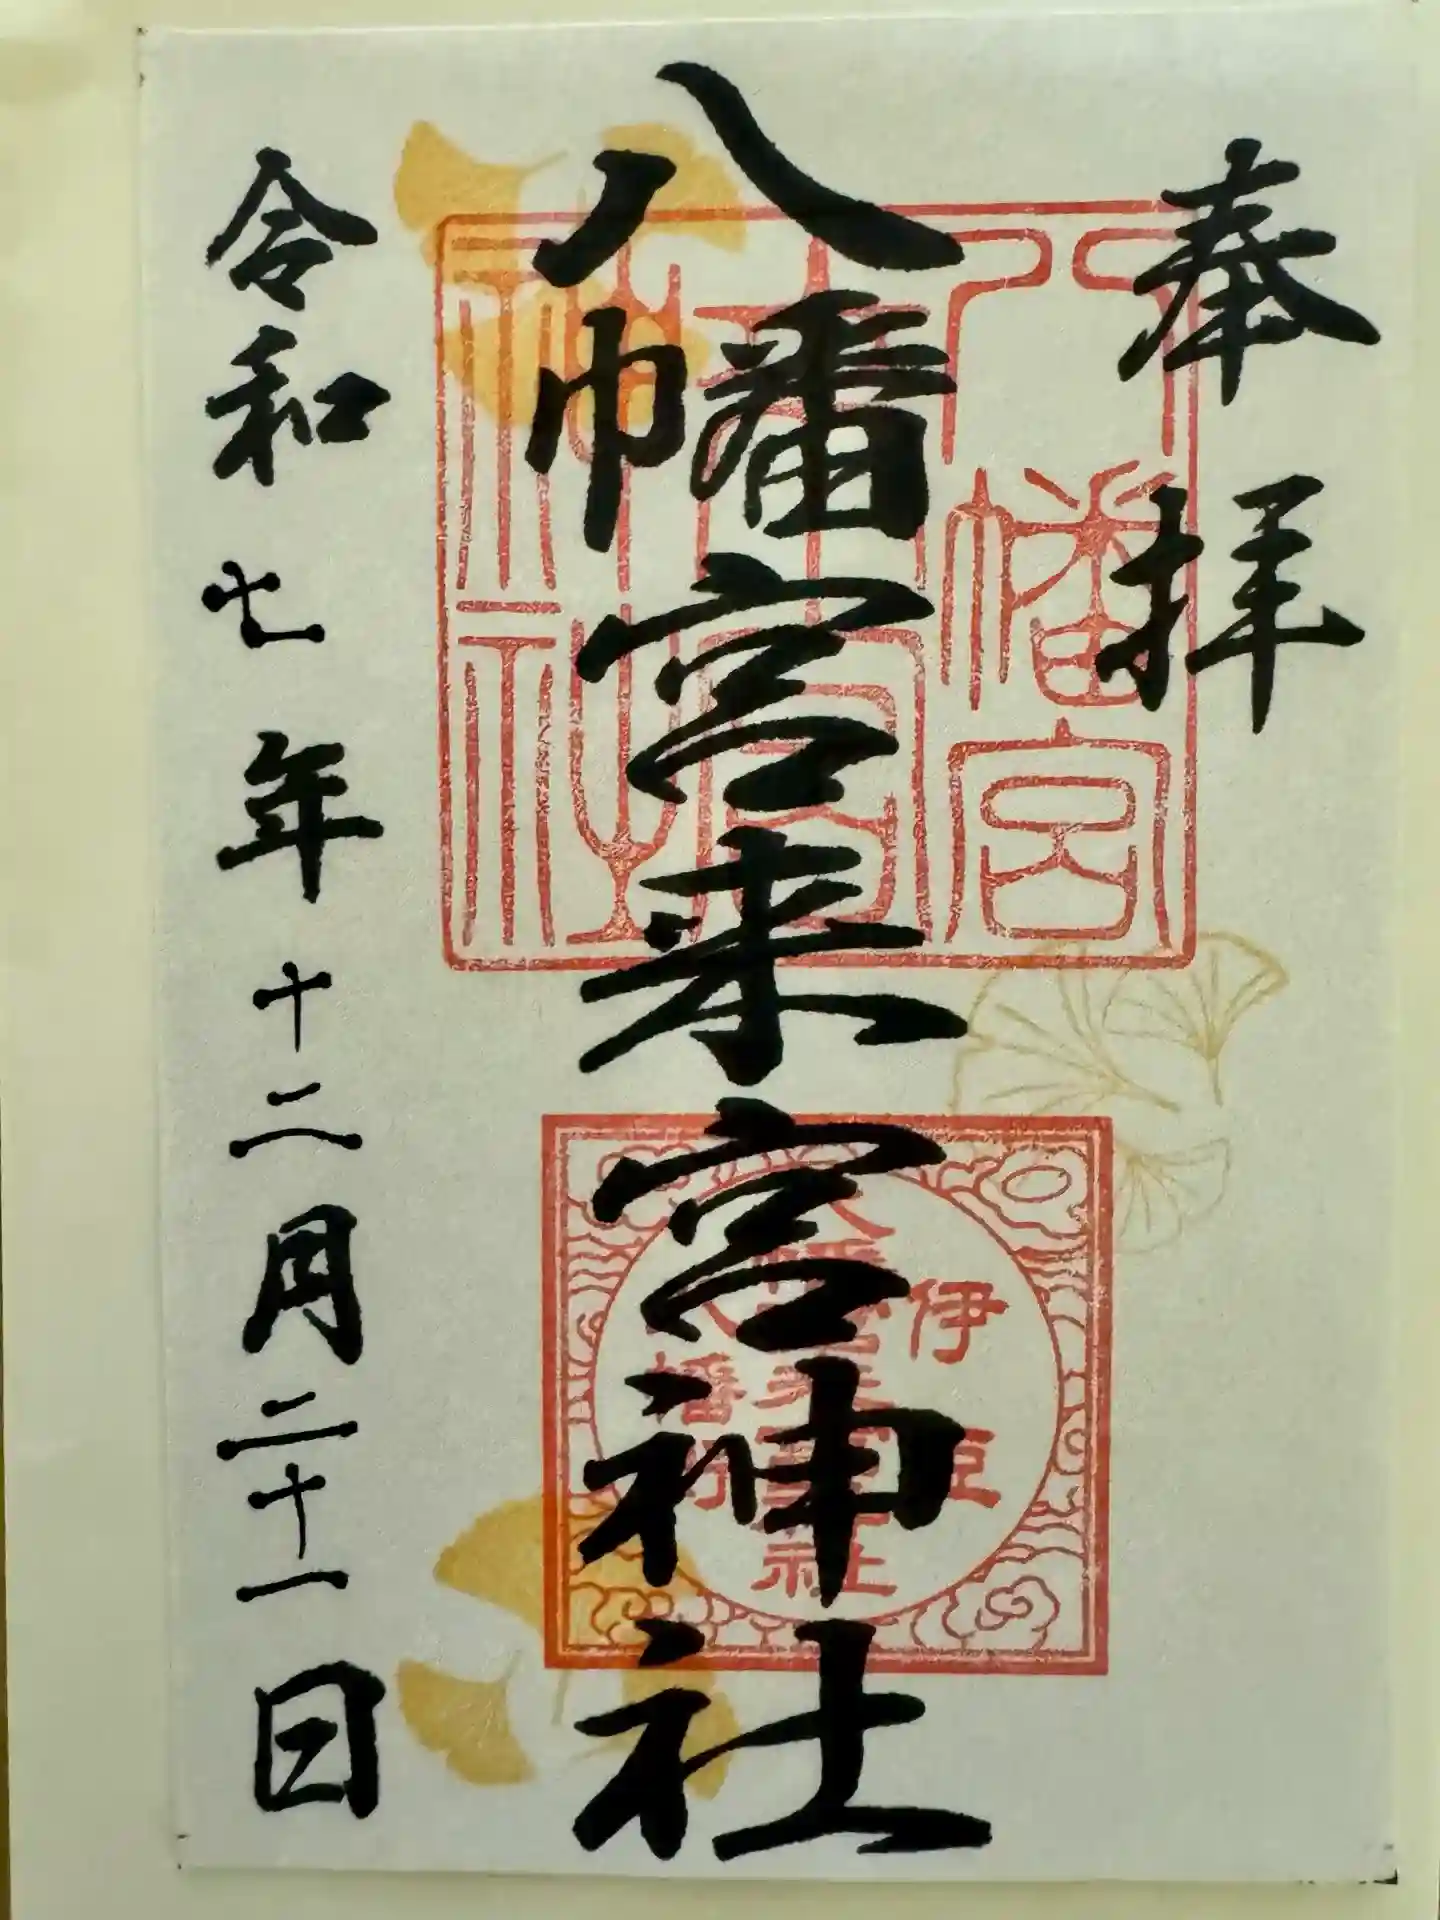 奉拝
八幡宮来宮神社
令和七年十二月二十一日
八幡宮
来宮
神社
伊豆
八幡宮来宮神社
八幡野